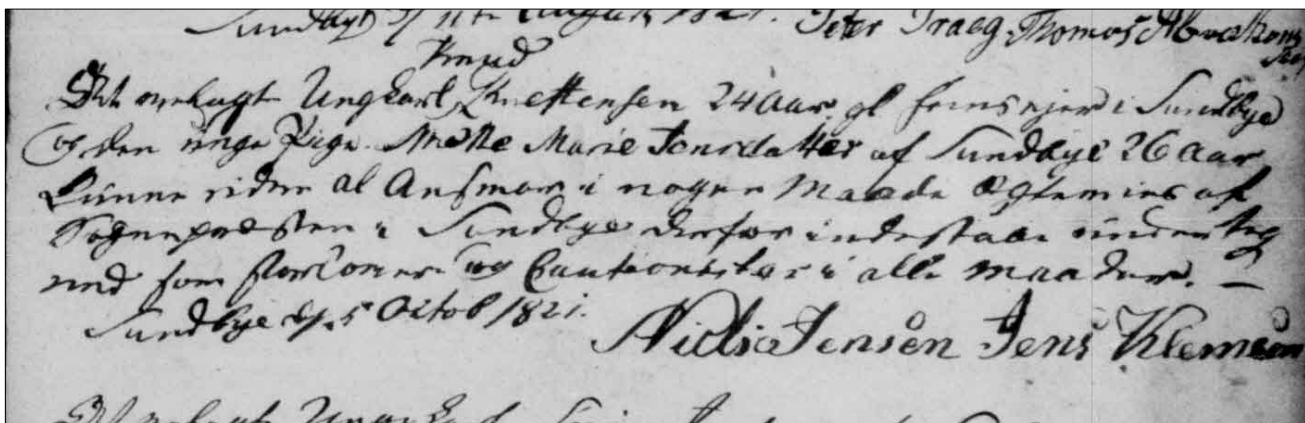 Sundbye d. 11te August 1821. Peter Traeg, Thomas
Knud
At ombagt Ungkarl Knettensen 24 Aar gl. hiemmehørende i Sundbye
og den unge Pige Mette Marie Jensdatter af Sundbye 26 Aar
kunne uden al Ansvar i nogen Maade Ægtevies af
Sognepræsten i Sundbye derfor indestaae underteg
ned som Forlover og Cautionister i alle maader. —
Sundbye d. 5 Octob 1821.
Niels Jensen Jens Klemsen
Ungkarl